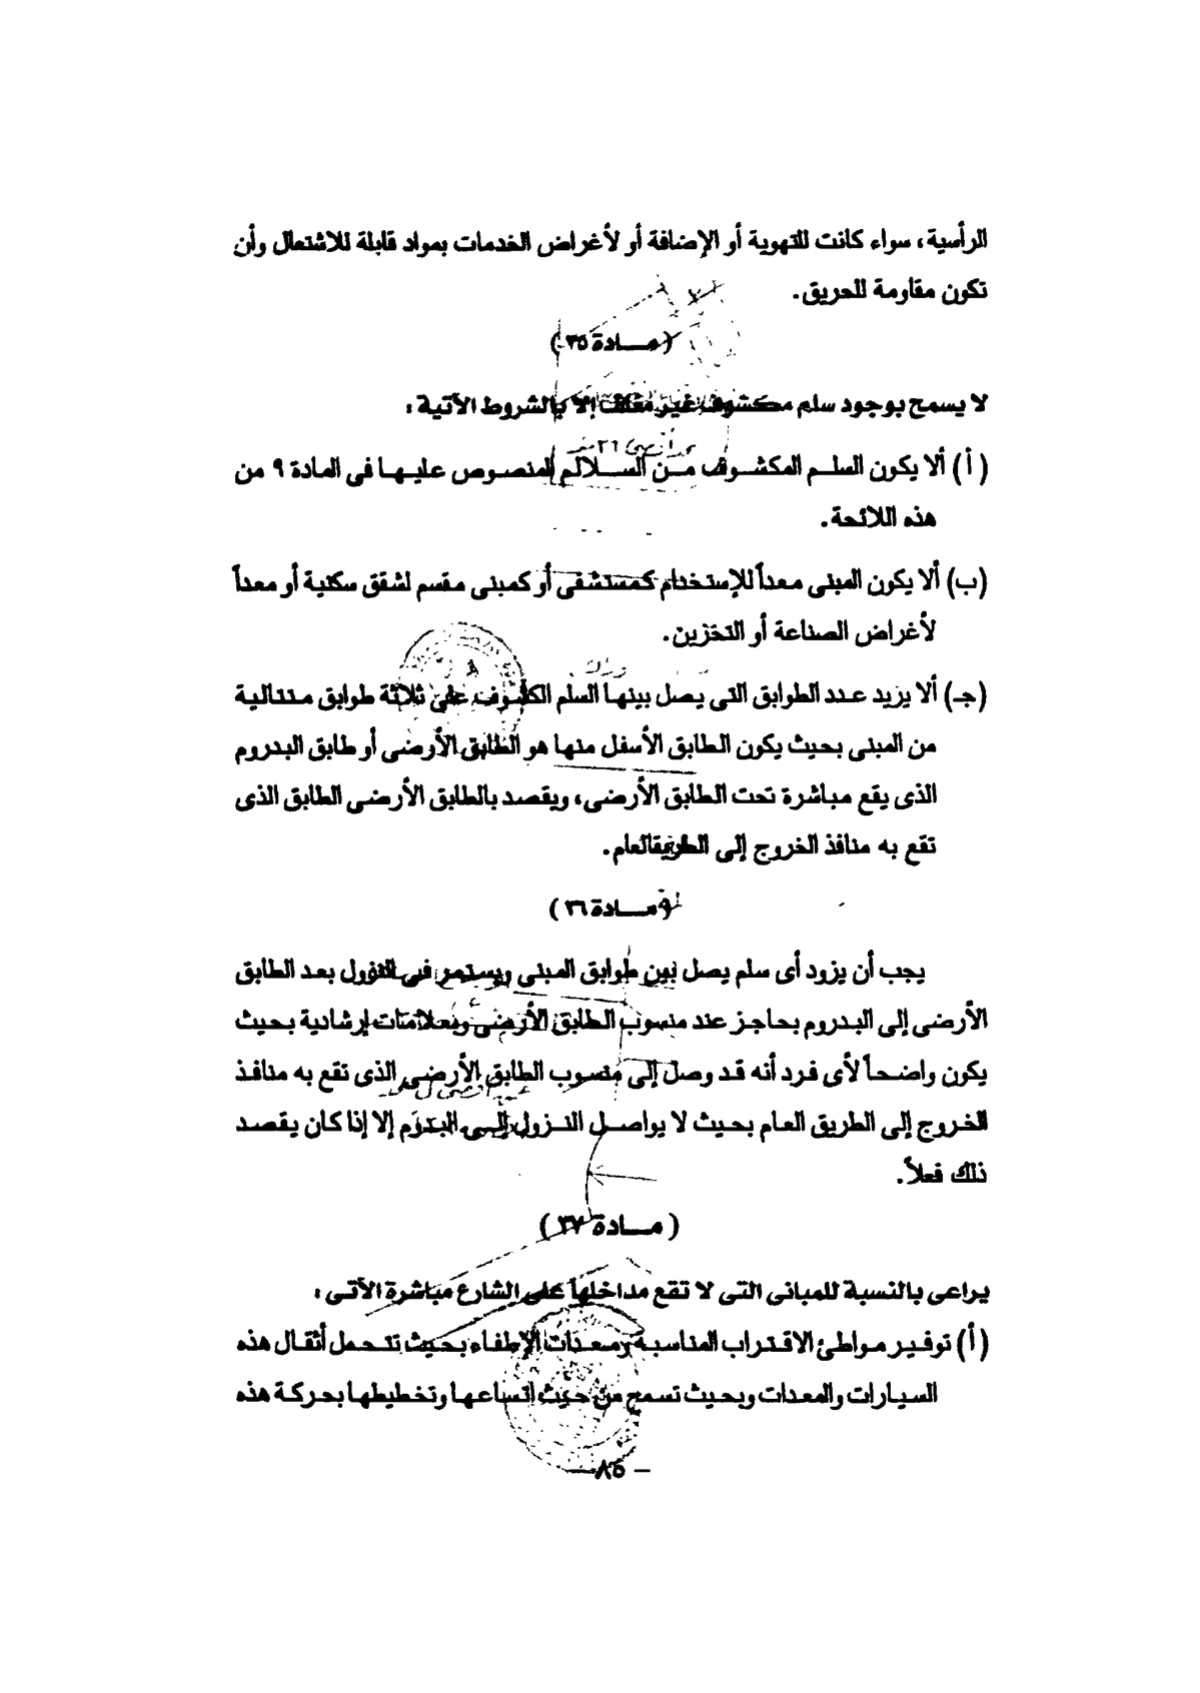 الرأسية، سواء كانت للتهوية أو الإضافة أو لأغراض الخدمات بمواد قابلة للاشتعال وأن
تكون مقاومة للحريق.
(مـــادة ٣٥)
لا يسمح بوجود سلم مكشوف غير مغلف إلا بالشروط الآتية :
(أ) ألا يكون السلـم المكشـوف مـن السـلالم المنصـوص عليـهـا فى المادة ٩ من
هذه اللائحة.
(ب) ألا يكون المبنى معداً للإستخدام كمستشفى أو كمبنى مقسم لشقق سكنية أو معداً
لأغراض الصناعة أو التخزين.
(جـ) ألا يزيد عدد الطوابق التى يصل بينها السلم المكشوف على ثلاثة طوابق متتالية
من المبنى بحيث يكون الطابق الأسفل منها هو الطابق الأرضى أو طابق البدروم
الذى يقع مباشرة تحت الطابق الأرضى، ويقصد بالطابق الأرضى الطابق الذى
تقع به منافذ الخروج إلى الطريق العام.
(مـــادة ٣٦)
يجب أن يزود أى سلم يصل بين طوابق المبنى ويستمر فى النزول بعد الطابق
الأرضى إلى البدروم بحاجز عند منسوب الطابق الأرضى وبعلامات إرشادية بحيث
يكون واضحاً لأى فرد أنه قد وصل إلى منسوب الطابق الأرضى الذى تقع به منافذ
الخروج إلى الطريق العام بحيث لا يواصـل النـزول إلـى البدروم إلا إذا كان يقصد
ذلك فعلاً.
(مـــادة ٣٧)
يراعى بالنسبة للمبانى التى لا تقع مداخلها على الشارع مباشرة الآتـى :
(أ) توفير مواطئ الاقتراب المناسبة ومعدات الإطفاء بحيث تتحمل أثقال هذه
السيارات والمعدات وبحيث تسمح من حيث اتساعها وتخطيطها بحركة هذه
— ٨٥ —